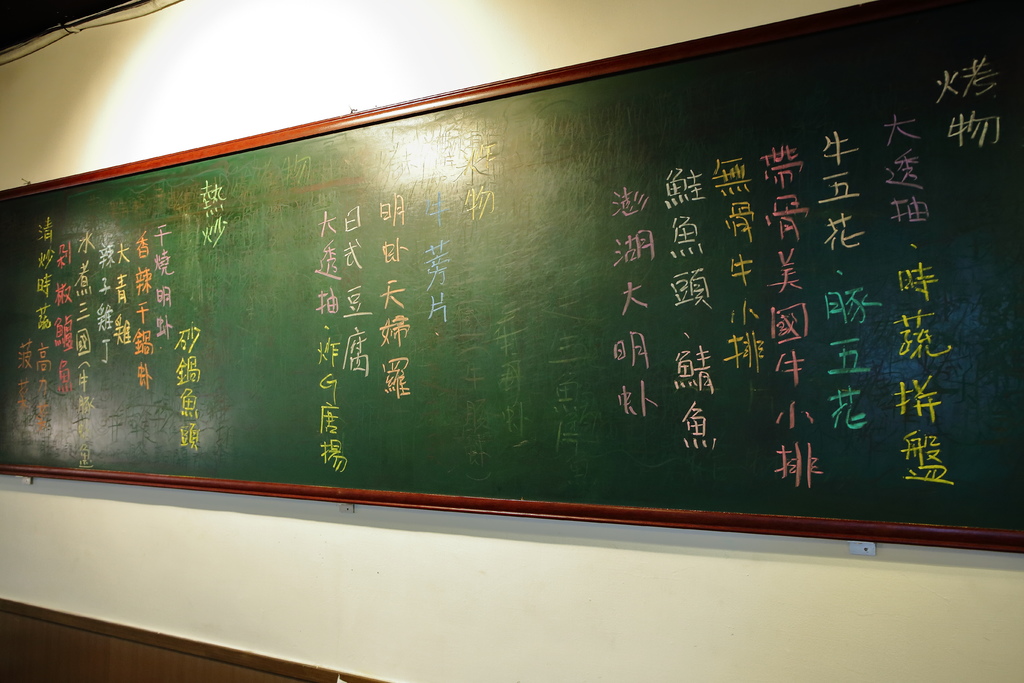 烤物
大透抽、時蔬拼盤
牛五花、豚五花
帶骨美國牛小排
無骨牛小排
鮭魚頭、鯖魚
澎湖大明卦
炸物
牛蒡片、
明卦天婦羅
日式豆腐
大透抽、炸G唐揚
熱炒
砂鍋魚頭
干燒明卦
香辣干鍋卦
大青雞
辣子雞丁
水煮三國(牛豚
剁椒鱸魚
清炒時蔬